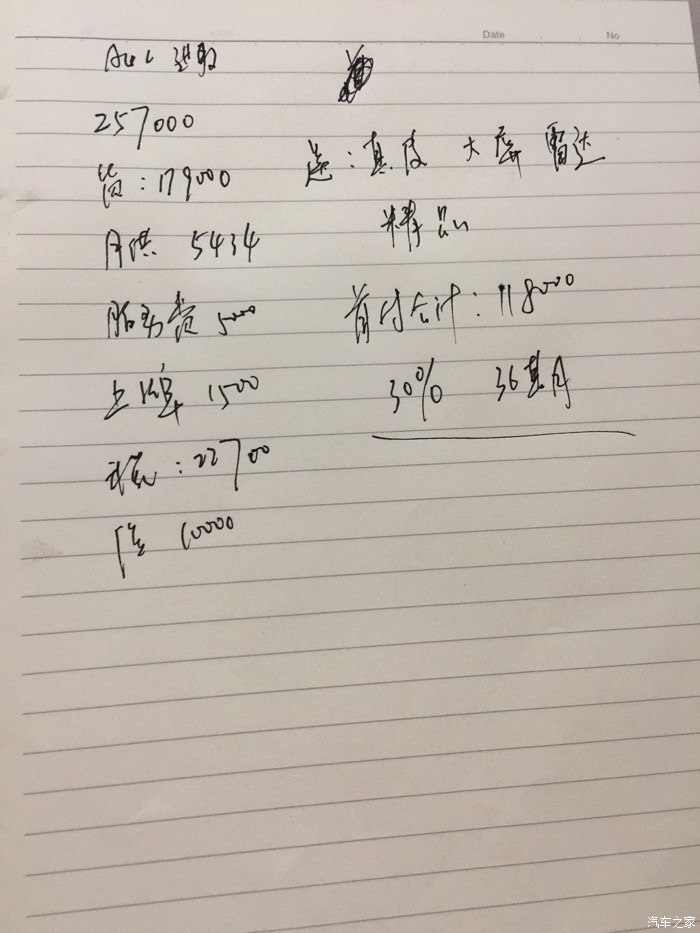 Date No
A4L 进取
257000
贷：179000
月供 5434
服务费 5000
上牌 1500
税：22700
保 10000
送：真皮 大屏 雷达
精品
首付合计：118000
30% 36期
汽车之家